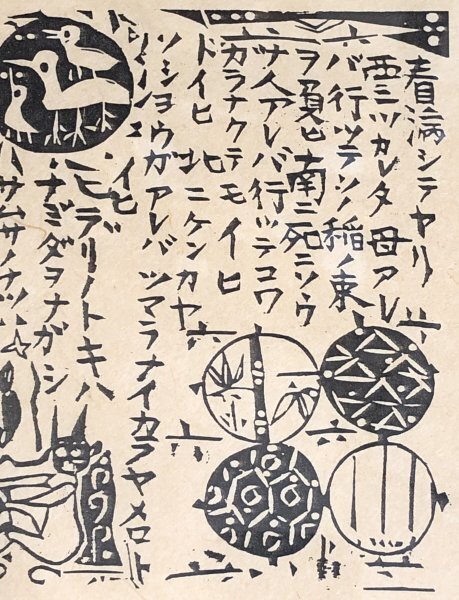 看病シテヤリ
西ニツカレタ母アレ
バ行ツテソノ稲ノ束
ヲ負ヒ南ニ死ニソウ
ナ人アレバ行ツテコワ
ガラナクテモイヒ
トイヒ北ニケンカヤ
ソシヨウガアレバツマラナイカラヤメロト
イヒ
ヒデリノトキハ
ナミダヲナガシ
サムサノナツ